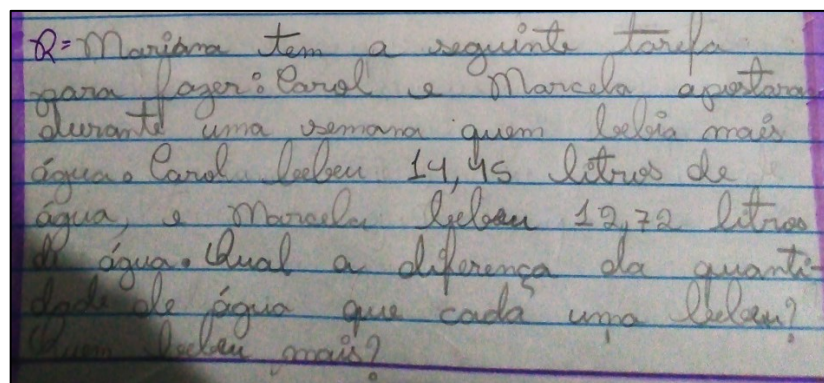 R= Mariana tem a seguinte tarefa
para fazer: Carol e Marcela apostaram
durante uma semana quem bebia mais
água. Carol bebeu 14,45 litros de
água, e Marcela bebeu 12,72 litros
de água. Qual a diferença da quanti-
dade de água que cada uma bebeu?
Quem bebeu mais?